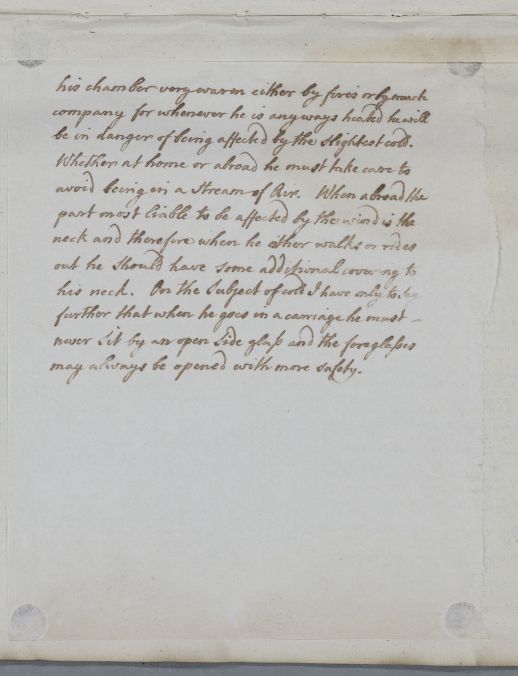 his chamber very warm either by fires or by much
company for whenever he is anyways heated he will
be in danger of being affected by the slightest cold.
Whether at home or abroad he must take care to
avoid being in a Stream of Air. When abroad the
part most liable to be affected by the wind is the
neck and therefore when he either walks or rides
out he should have some additional covering to
his neck. On the Subject of cold I have only to say
further that when he goes in a carriage he must
never sit by an open side glass and the foreglasses
may always be opened with more safety.